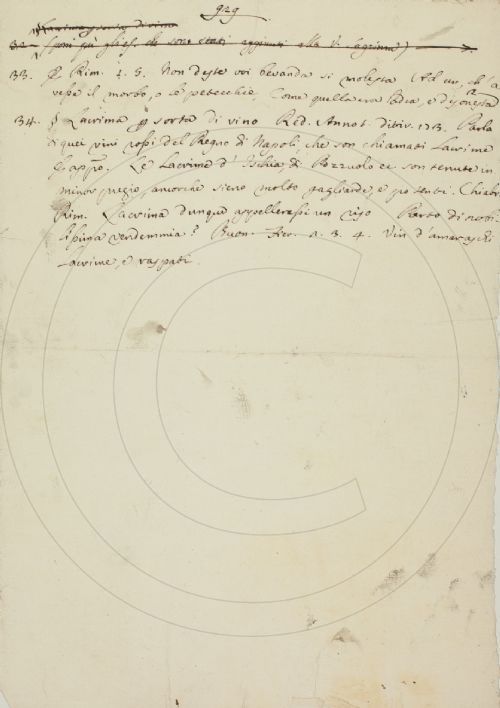 929
Lacrima p sorta di vino
32. (poni qui gli es. che sono stati aggiunti alla V. Lagrima)
33. § Rim. 1. 5. Non deste voi bevanda sì molesta Ad un, ch' a-
vesse il morbo, o le petecchie, Come quell'era ladra, e disonesta
34. § Lacrima p sorta di vino Red. Annot. ditir. 113. Parla
di quei vini rossi del Regno di Napoli, che son chiamati Lacrime
E appo. Le Lacrime d'Ischia di Pozzuolo ec. son tenute in
minor pregio, ancorchè sieno molto gagliarde, e potenti. Chiabr.
Rim. Lacrima dunque appellerassi un riso Parto di nobi-
lissima vendemmia? Buon. Fier. a. 3. 4. Vin d'amaraschi
Lacrime, e raspati.